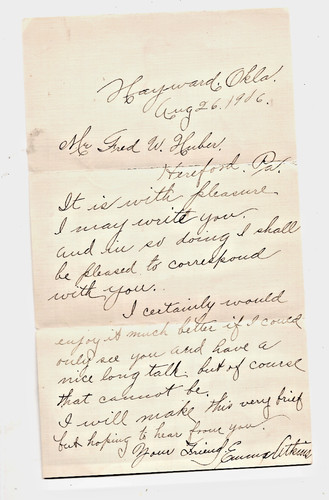 Hayward, Okla.
Aug 26, 1906.
Mr Fred W. Huber.
Hereford, Pa.
It is with pleasure
I may write you.
and in so doing I shall
be pleased to correspond
with you.
I certainly would
enjoy it much better if I could
only see you and have a
nice long talk but of course
that cannot be.
I will make this very brief
but hoping to hear from you.
Your Friend, Emma Atkins